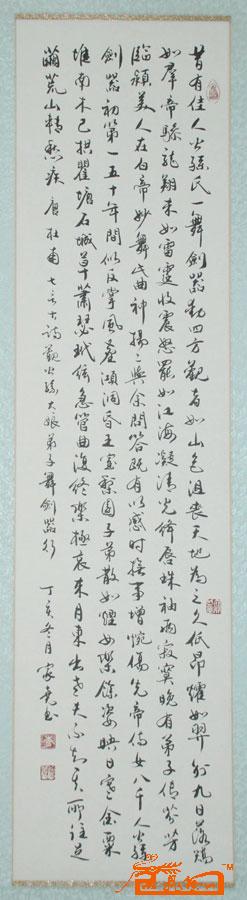 昔有佳人公孫氏一舞劍器動四方觀者如山色沮喪天地為之久低昂㸌如羿射九日落矯
如羣帝驂龍翔來如雷霆收震怒罷如江海凝清光絳唇珠袖兩寂寞晚有弟子傳芬芳
臨潁美人在白帝妙舞此曲神揚揚與余問答既有以感時撫事增惋傷先帝侍女八千人公孫
劍器初第一五十年間似反掌風塵澒洞昏王室梨園子弟散如煙女樂餘姿映日寒金粟
堆南木已拱瞿塘石城草蕭瑟玳筵急管曲復終樂極哀來月東出老夫不知其所往足
繭荒山轉愁疾 唐杜甫七言古詩觀公孫大娘弟子舞劍器行 丁亥冬月